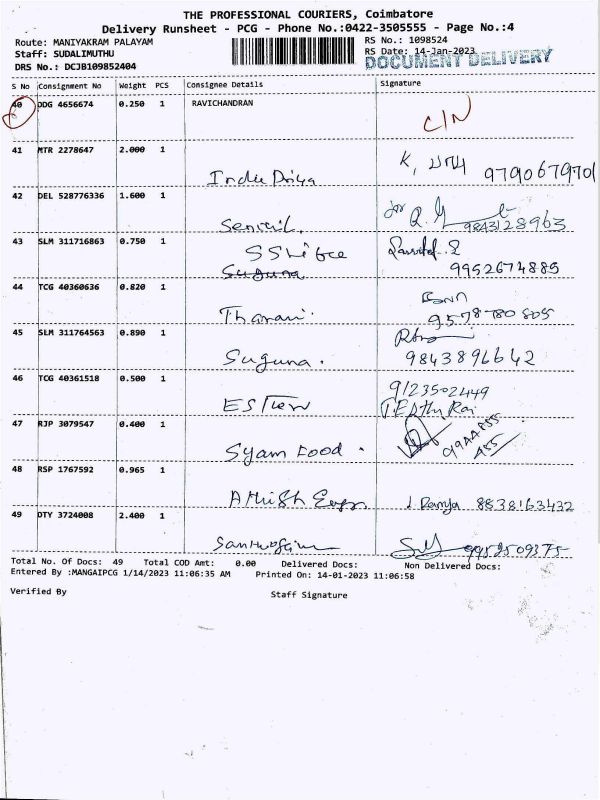 THE PROFESSIONAL COURIERS, Coimbatore
Delivery Runsheet - PCG - Phone No.:0422-3505555 - Page No.:4
Route: MANIYAKRAM PALAYAM RS No.: 1098524
Staff: SUDALIMUTHU RS Date: 14-Jan-2023
DOCUMENT DELIVERY
DRS No.: DCJB109852404
S No Consignment No Weight PCS Consignee Details Signature
40 DDG 4656674 0.250 1 RAVICHANDRAN C/N
41 MTR 2278647 2.000 1
Indu Priya 9790679701
42 DEL 528776336 1.600 1
Senthil. 9843128963
43 SLM 311716863 0.750 1
Suguna 9952674885
44 TCG 40360636 0.820 1
Tharani. 9578780805
45 SLM 311764563 0.890 1
Suguna. 9843896642
46 TCG 40361518 0.500 1 9123502449
47 RJP 3079547 0.400 1
Syam Food.
48 RSP 1767592 0.965 1
Ramya 8838163432
49 DTY 3724008 2.400 1
9952509375
Total No. Of Docs: 49 Total COD Amt: 0.00 Delivered Docs: Non Delivered Docs:
Entered By :MANGAIPCG 1/14/2023 11:06:35 AM Printed On: 14-01-2023 11:06:58
Verified By Staff Signature